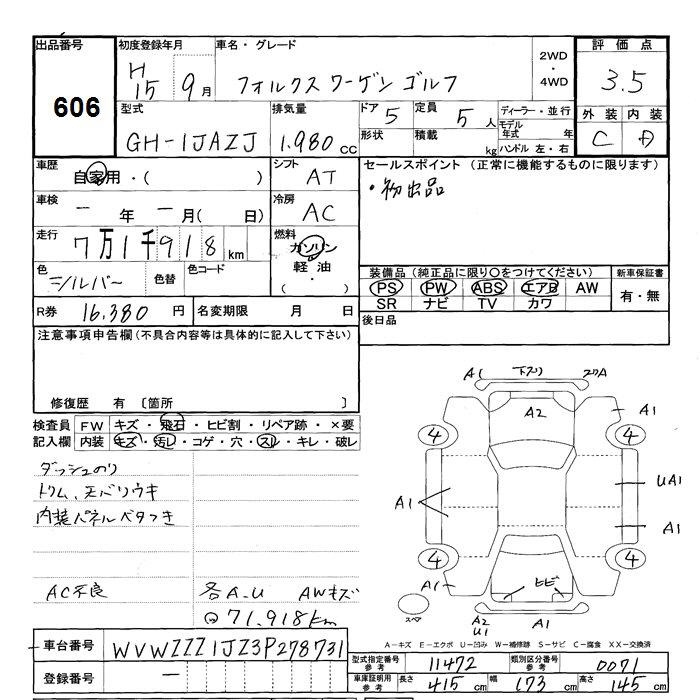 出品番号 初度登録年月 車名・グレード 2WD ・ 4WD 評価点
606 H15 9月 フォルクスワーゲン ゴルフ 3.5
型式 排気量 ドア 5 定員 5人 ディーラー・並行 外装 内装
GH-1JAZJ 1.980cc 形状 積載 kg モデル年式 年 C D
ハンドル 左・右
車歴 自家用・( ) シフト AT セールスポイント (正常に機能するものに限ります)
・初出品
車検 ー年ー月( 日) 冷房 AC
走行 7万1千918km 燃料 ガソリン
軽油
・
( )
色 シルバー 色替 色コード
装備品(純正品に限り○をつけてください) 新車保証書
PS PW ABS エアB AW 有・無
SR ナビ TV カワ
R券 16.380円 名変期限 月 日 後日品
注意事項申告欄(不具合内容等は具体的に記入して下さい)
修復歴 有 〔箇所 〕
検査員 FW キズ・飛石・ヒビ割・リペア跡・×要
記入欄 内装 キズ・汚し・コゲ・穴・スレ・キレ・破レ
ダッシュのり
トリム、天バリウキ
内装パネルベタつき
AC不良 各A.U AWキズ
71.918km
A1 下スリ A
A2 A1
4 4
A1 UA1
A1
4 4
A1 ヒビ
スペア A2 U1 A1
A-キズ E-エクボ U-凹み W-補修跡 S-サビ C-腐食 XX-交換済
車台番号 WVWZZZ1JZ3P278731
登録番号 ー
型式指定番号 参考 11472 類別区分番号 参考 0071
車庫証明用 参考 長さ 415cm 幅 173cm 高さ 145cm